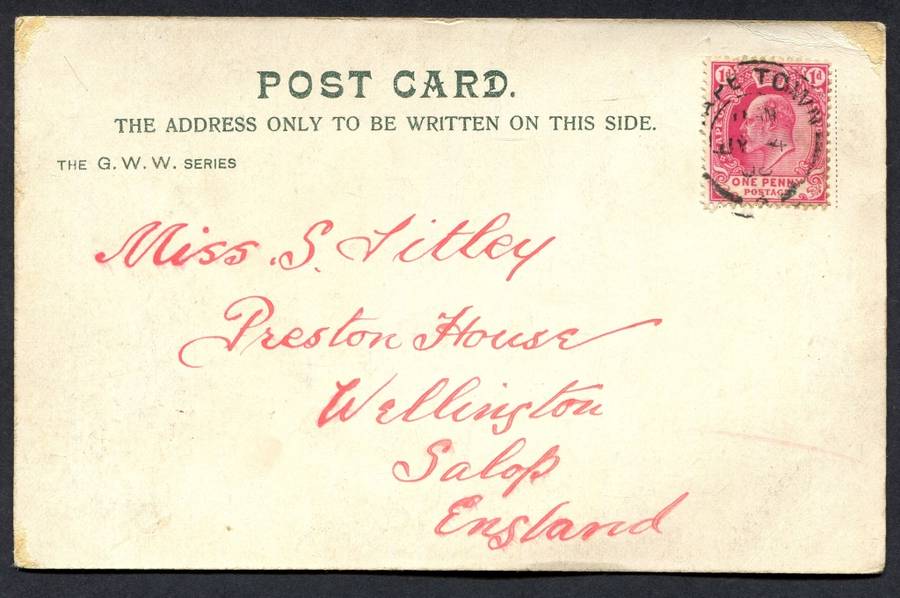 POST CARD.
THE ADDRESS ONLY TO BE WRITTEN ON THIS SIDE.
THE G. W. W. SERIES
1d 1d
ONE PENNY
POSTAGE
TOWN
JY 4
Miss. S. Titley
Preston House
Wellington
Salop
England